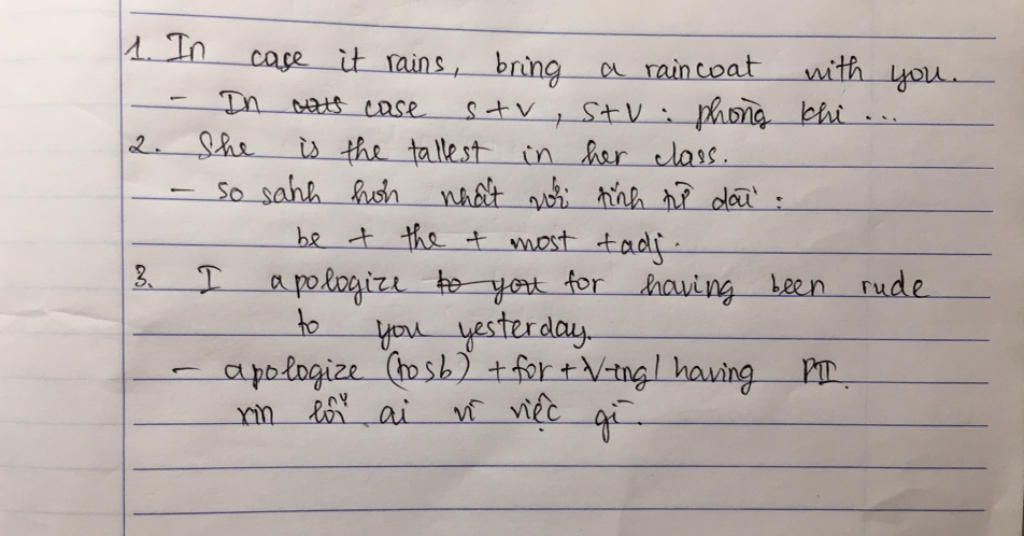 1. In case it rains, bring a raincoat with you.
- In case S+V, S+V : phòng khi ...
2. She is the tallest in her class.
- so sánh hơn nhất với tính từ dài :
be + the + most + adj.
3. I apologize to you for having been rude
to you yesterday.
- apologize (to sb) + for + V-ing / having PII.
xin lỗi ai vì việc gì.